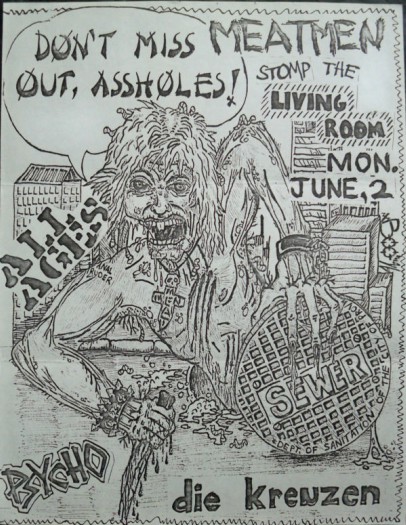 DØN'T MISS
ØUT, ASSHØLES!
MEATMEN
STOMP THE
LIVING
ROOM
MON.
JUNE, 2
ALL
AGES
SEWER
DEPT. OF SANITATION
PSYCHO
die kreuzen